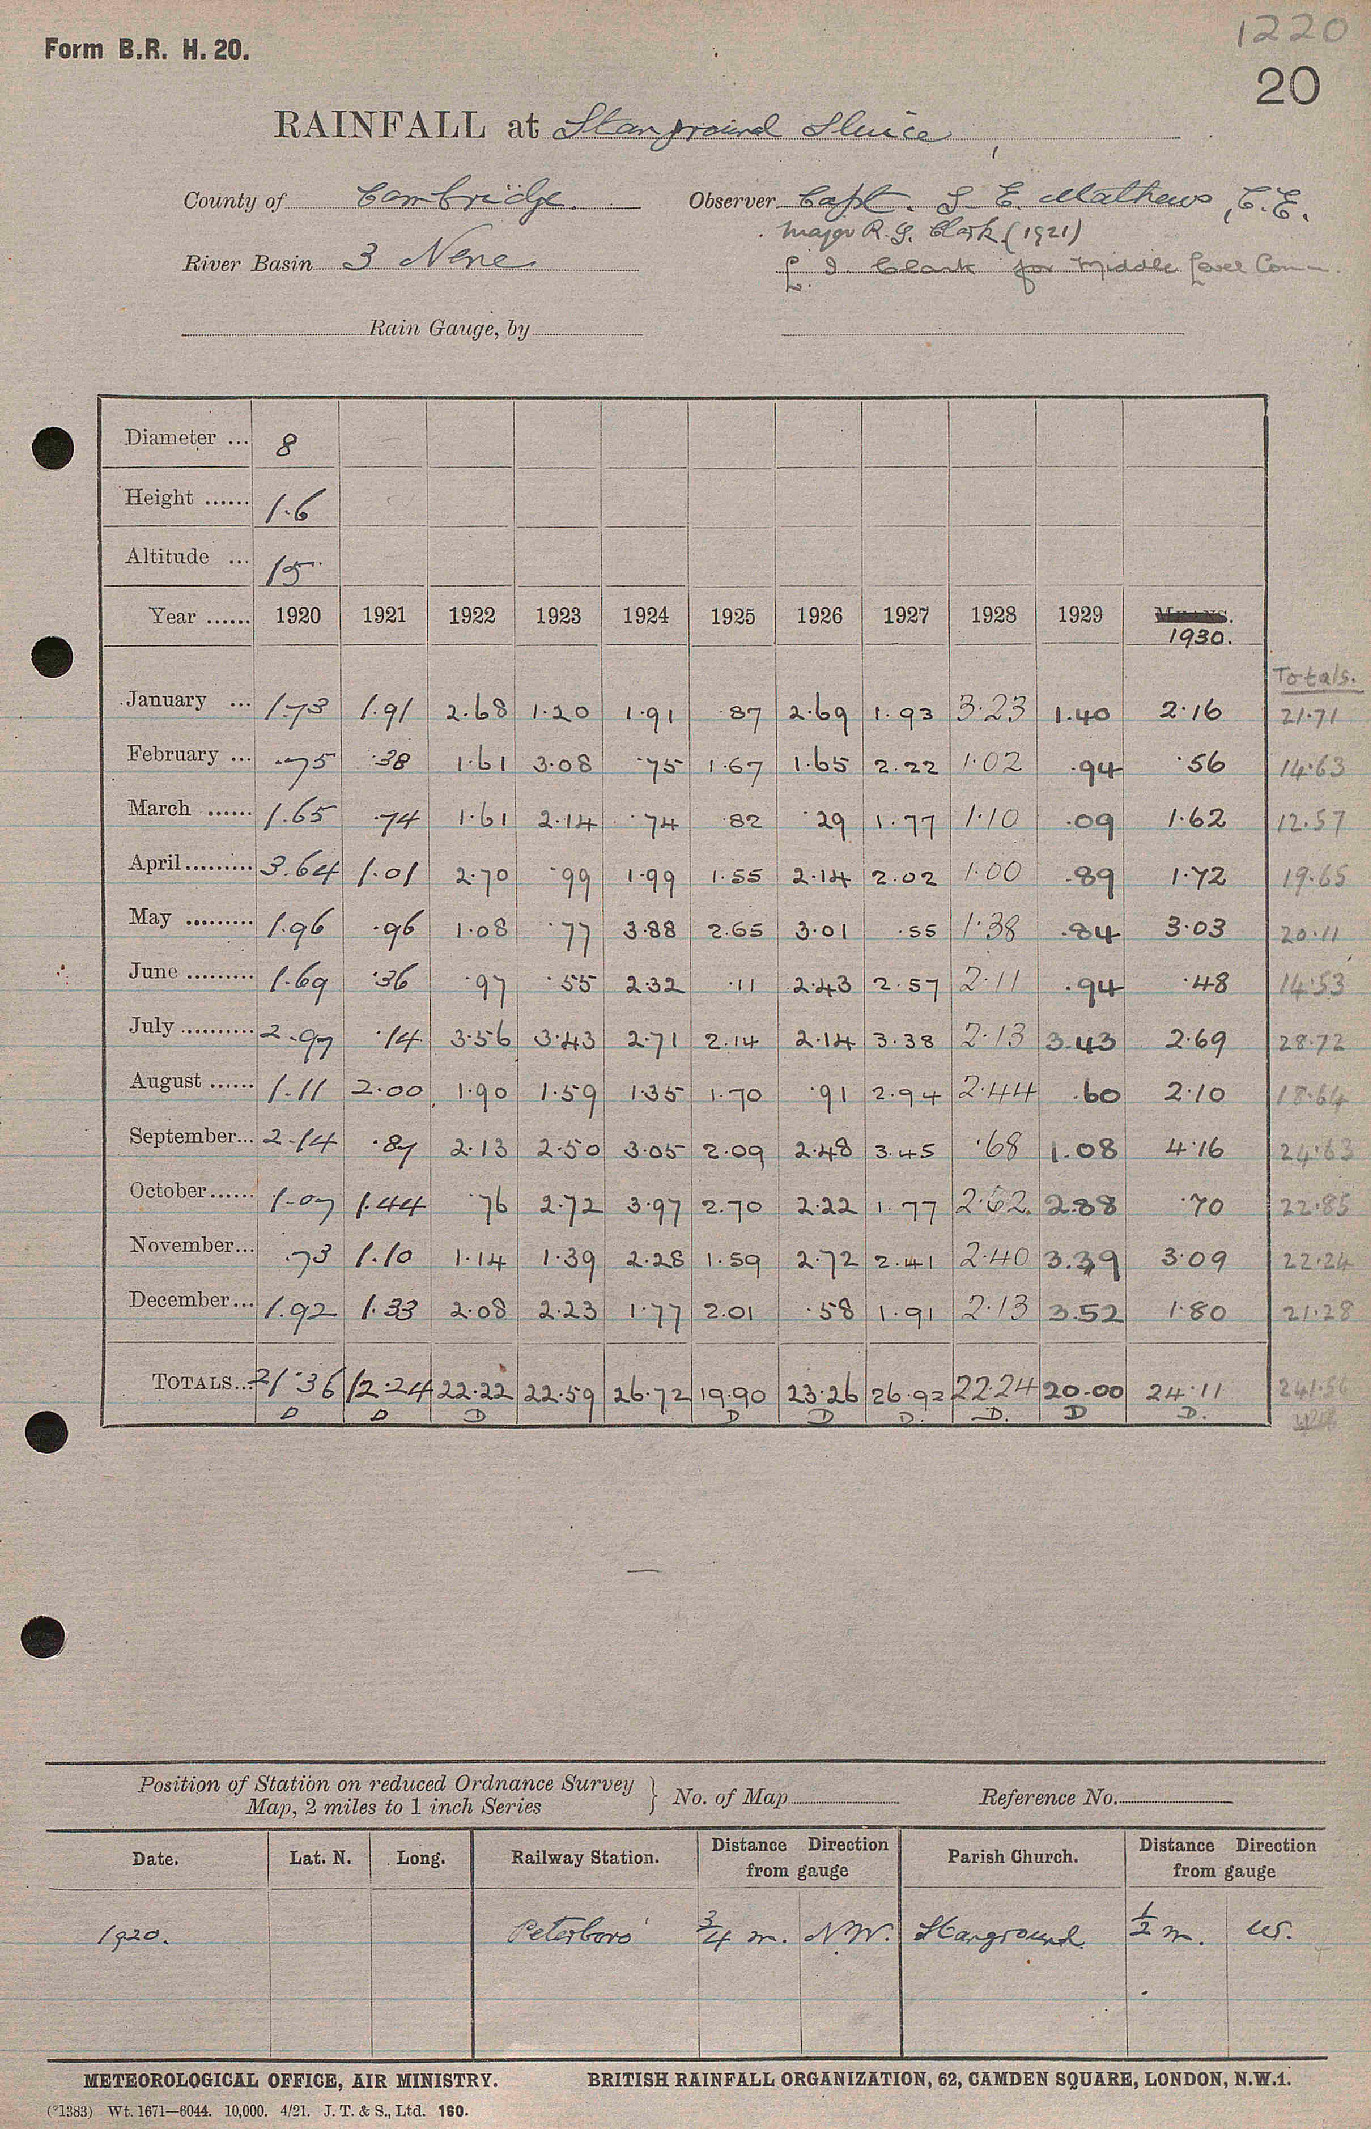 1220
Form B.R. H. 20.
20
RAINFALL at Stanground Sluice
County of Cambridge. Observer Capt. S. E. Mathews, C.E.
Major R. G. Clark (1921)
River Basin 3 Nene
L I Clark for Middle Level Comm.
Rain Gauge, by
Diameter ... 8
Height ...... 1.6
Altitude ... 15
Year ...... 1920 1921 1922 1923 1924 1925 1926 1927 1928 1929 MEANS.
1930.
Totals.
January ... 1.73 1.91 2.68 1.20 1.91 .87 2.69 1.93 3.23 1.40 2.16 21.71
February ... .75 .38 1.61 3.08 .75 1.67 1.65 2.22 1.02 .94 .56 14.63
March ...... 1.65 .74 1.61 2.14 .74 .82 .29 1.77 1.10 .09 1.62 12.57
April ......... 3.64 1.01 2.70 .99 1.99 1.55 2.14 2.02 1.00 .89 1.72 19.65
May ......... 1.96 .96 1.08 .77 3.88 2.65 3.01 .55 1.38 .84 3.03 20.11
June ......... 1.69 .36 .97 .55 2.32 .11 2.43 2.57 2.11 .94 .48 14.53
July .......... 2.97 .14 3.56 3.43 2.71 2.14 2.14 3.38 2.13 3.43 2.69 28.72
August ...... 1.11 2.00 1.90 1.59 1.35 1.70 .91 2.94 2.44 .60 2.10 18.64
September... 2.14 .87 2.13 2.50 3.05 2.09 2.48 3.45 .68 1.08 4.16 24.63
October...... 1.07 1.44 .76 2.72 3.97 2.70 2.22 1.77 2.62 2.88 .70 22.85
November... .73 1.10 1.14 1.39 2.28 1.59 2.72 2.41 2.40 3.39 3.09 22.24
December... 1.92 1.33 2.08 2.23 1.77 2.01 .58 1.91 2.13 3.52 1.80 21.28
TOTALS... 21.36 12.24 22.22 22.59 26.72 19.90 23.26 26.92 22.24 20.00 24.11 241.56
D D D D D D D. D D.
Position of Station on reduced Ordnance Survey
Map, 2 miles to 1 inch Series } No. of Map Reference No.
Date. Lat. N. Long. Railway Station. Distance Direction from gauge Parish Church. Distance Direction from gauge
1920. Peterboro' 3/4 m. N.W. Stanground 1/2 m. W.
METEOROLOGICAL OFFICE, AIR MINISTRY. BRITISH RAINFALL ORGANIZATION, 62, CAMDEN SQUARE, LONDON, N.W.1.
(*1383) Wt. 1671—6044. 10,000. 4/21. J. T. & S., Ltd. 160.